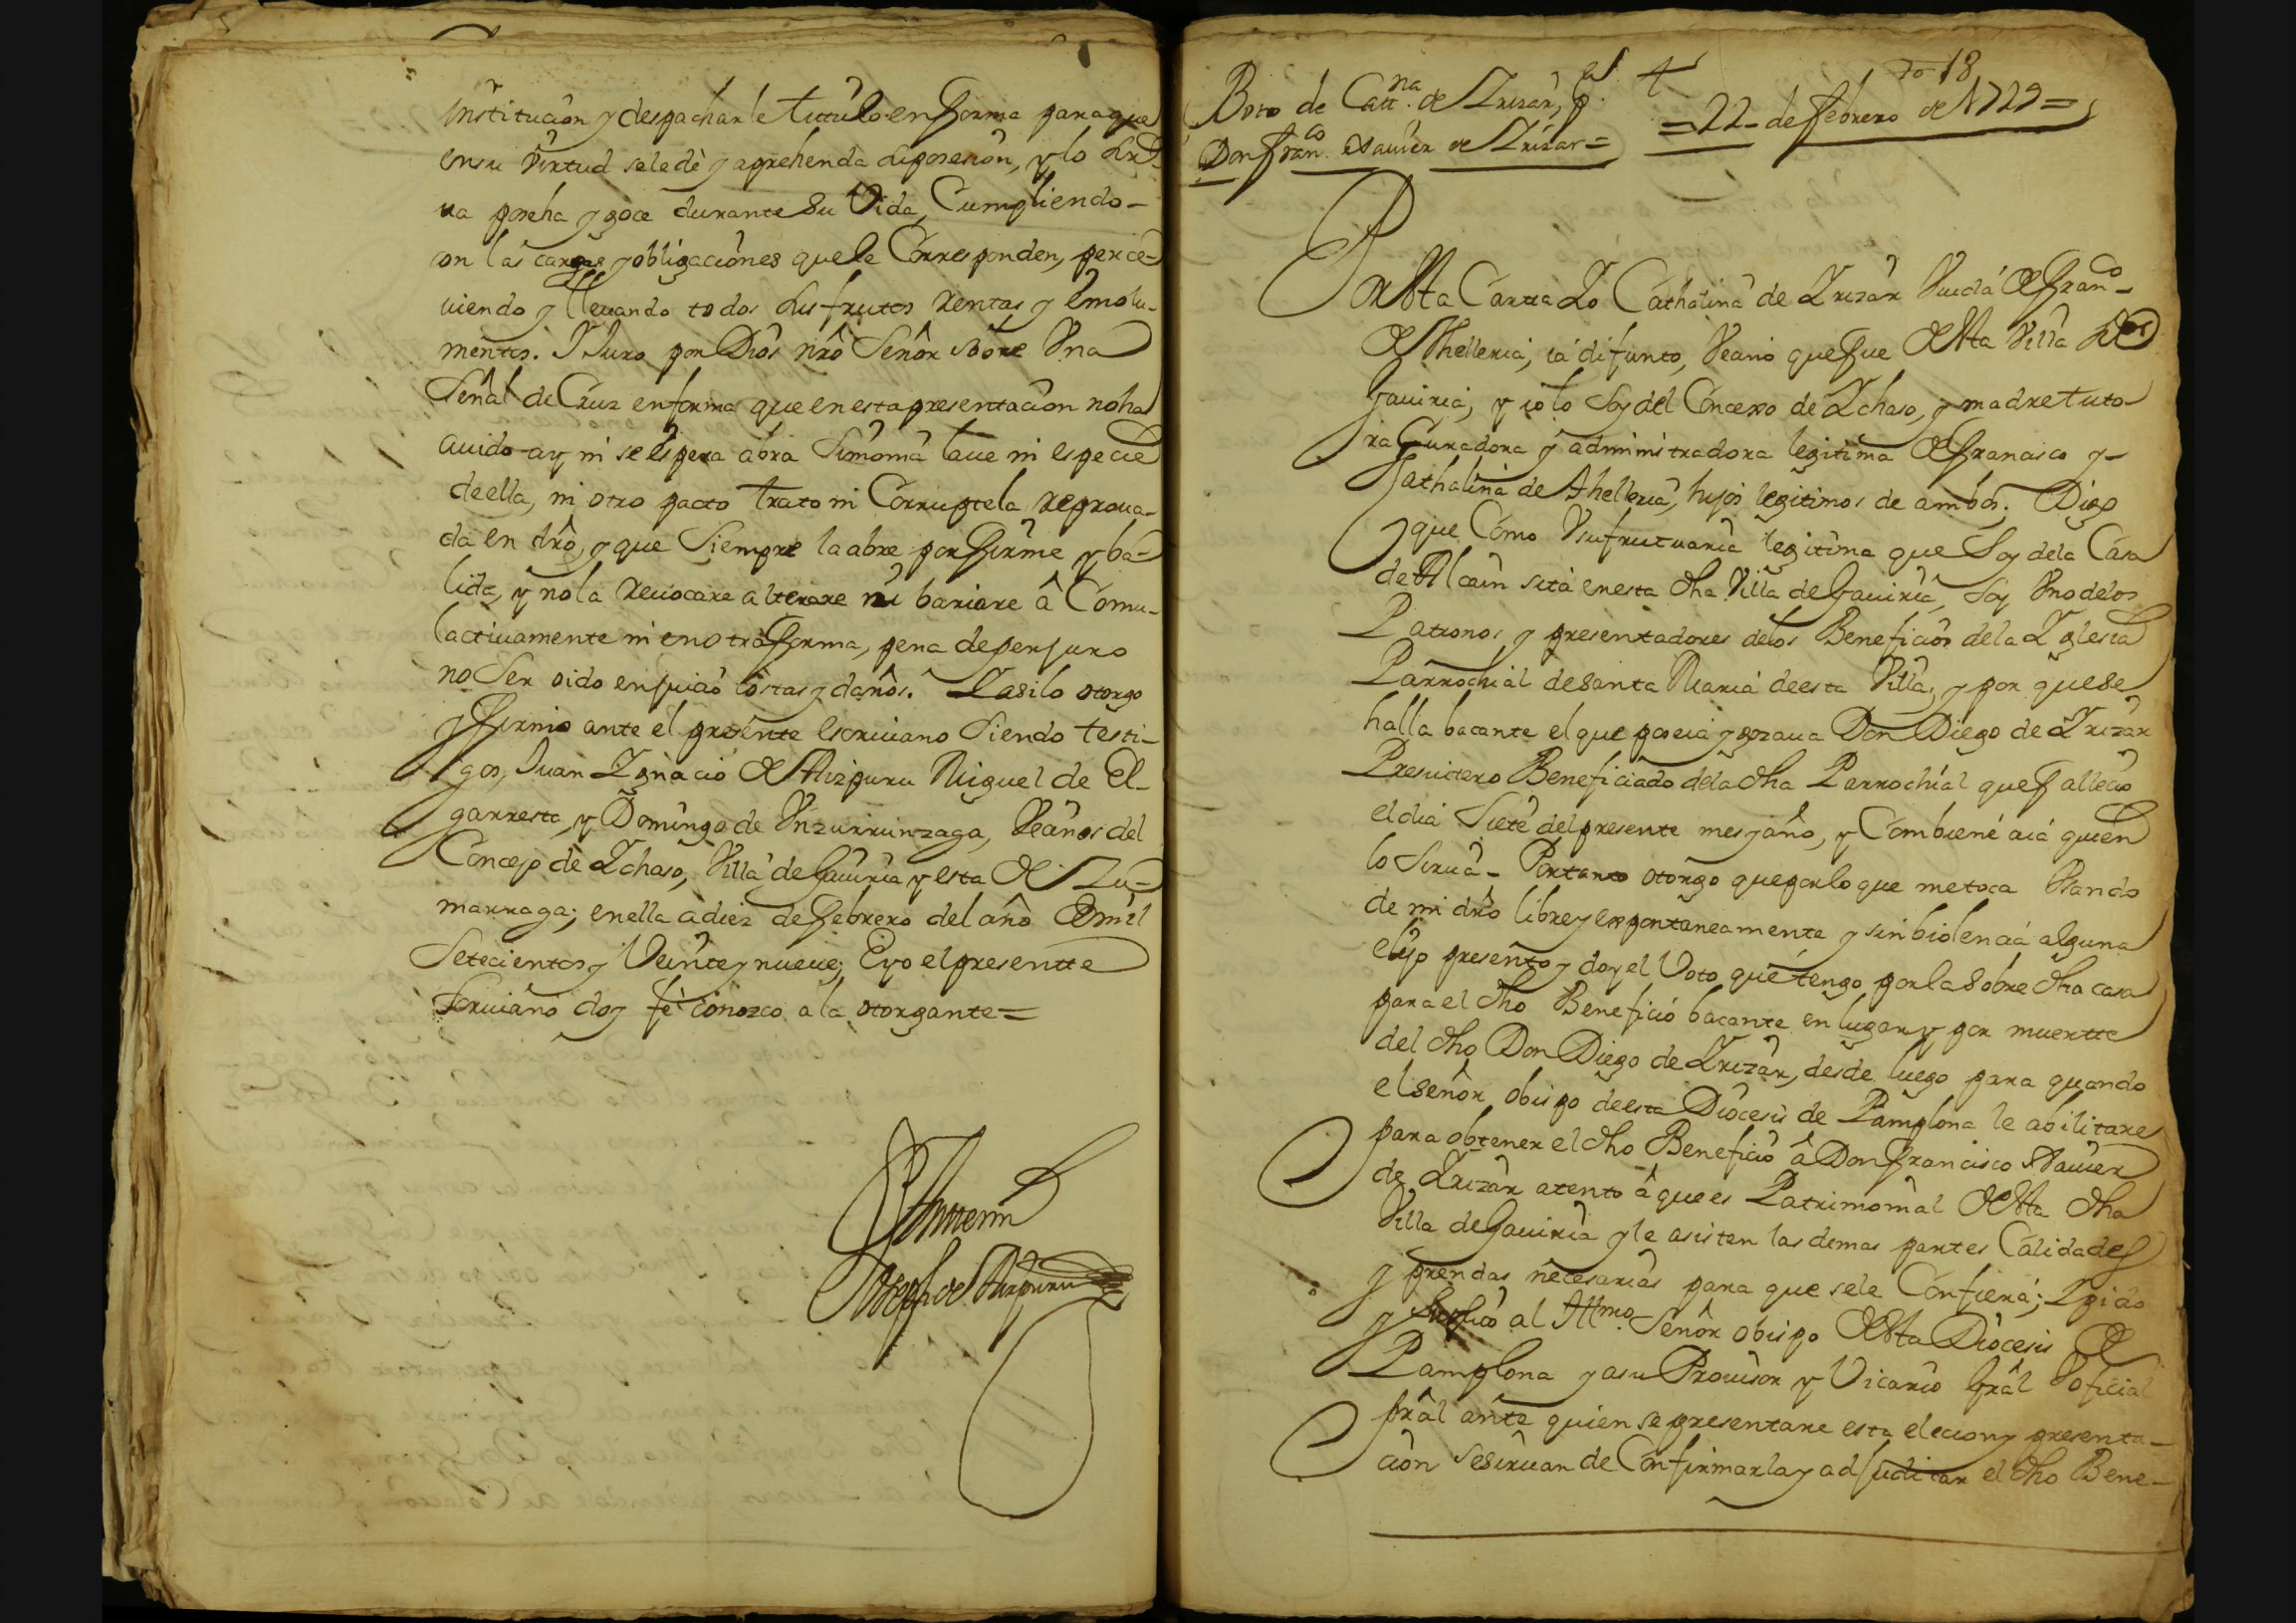 institucion y despacharle titulo en forma para que
en su virtud se le dè y aprehenda la posesion, y lo sir-
va poseha y goce durante su Vida, Cumpliendo-
con las cargas y obligaciones que le Corresponden, perce-
viendo y llevando todos sus frutos Rentas y emolu-
mentos. Y Juro por Dios nrô Señor sobre Vna
Señal de Cruz en forma que en esta presentacion no ha
auido ay ni se espera abra Simonia laue ni especie
de ella, ni otro pacto trato ni Corruptela reproua-
da en drô, y que Siempre la abre por firme y ba-
lida, y no la Reuocare alterare ni bariare â Comu-
lactiuamente ni en otra forma, pena de perjuro
no Ser oido en juicio costas y daños. Y asi lo otorgo
y firmo ante el presente escriuano Siendo testi-
gos, Juan Ygnacio de Aizpuru Miguel de El-
garresta, y Domingo de Vnzurrunzaga, Veçinos del
Concejo de Ychaso, Villa de Gauiria y esta de Zu-
marraga; en ella a diez de febrero del año de mil
Setecientos y Veinte y nueue; E yo el presentte
Escriuano doy fè conozco a la otorgante=
Ante mi
Joseph de Aizpuru
Boto de Catt.na de Yrizar, p.
Don fran.co Xauier de Yrizar=
4
fo 18
=22- de febrero de 1729=
Por esta Carta Yo Cathalina de Yrizar Viuda de fran.co
de Thelleria, iá difunto, Vecino que fue de esta Villa de
Gauiria, y io lo Soy del Concejo de Ychaso, y madre tuto-
ra Curadora y administradora legitima de francisco y-
Cathalina de Thelleria, hijos legitimos de ambos; Digo
que Como Vsufructuaria legitima que Soy dela Casa
de Alcain sita en esta dha Villa de Gauiria, Soy Vno delos
Patronos y presentadores delos Beneficios dela Yglesia
Parrochial de Santa Maria de esta Villa, y por que se
halla bacante el que poseia y gozaua Don Diego de Yrizar
Presuitero Beneficiado dela dha Parrochial que fallecio
el dia Siete del presente mes y año, y Combiene aiá quien
lo Sirua- Por tanto otorgo que por lo que me toca Vsando
de mi drô libre y espontaneamente y sin biolencia alguna
elijo presento y doy el Voto que tengo por la sobre dha casa
para el dho Beneficio bacante en lugar y por muertte
del dho Don Diego de Yrizar, desde luego para quando
el señor obispo de esta Diocesis de Pamplona le abilitare
para obtener el dho Beneficio â Don francisco Xauier
de Yrizar atento â que es Patrimonial de esta dha
Villa de Gauiria y le asisten las demas partes Calidades
y prendas necesarias para que se le Confiera; Y pido
y suplico al Illmo. Señor obispo de esta Diocesis de
Pamplona y a su Prouisor y Vicario Grâl V oficial
prâl ante quien se presentare esta eleccion y presenta-
cion se siruan de Confirmarla y adjudicar el dho Bene-